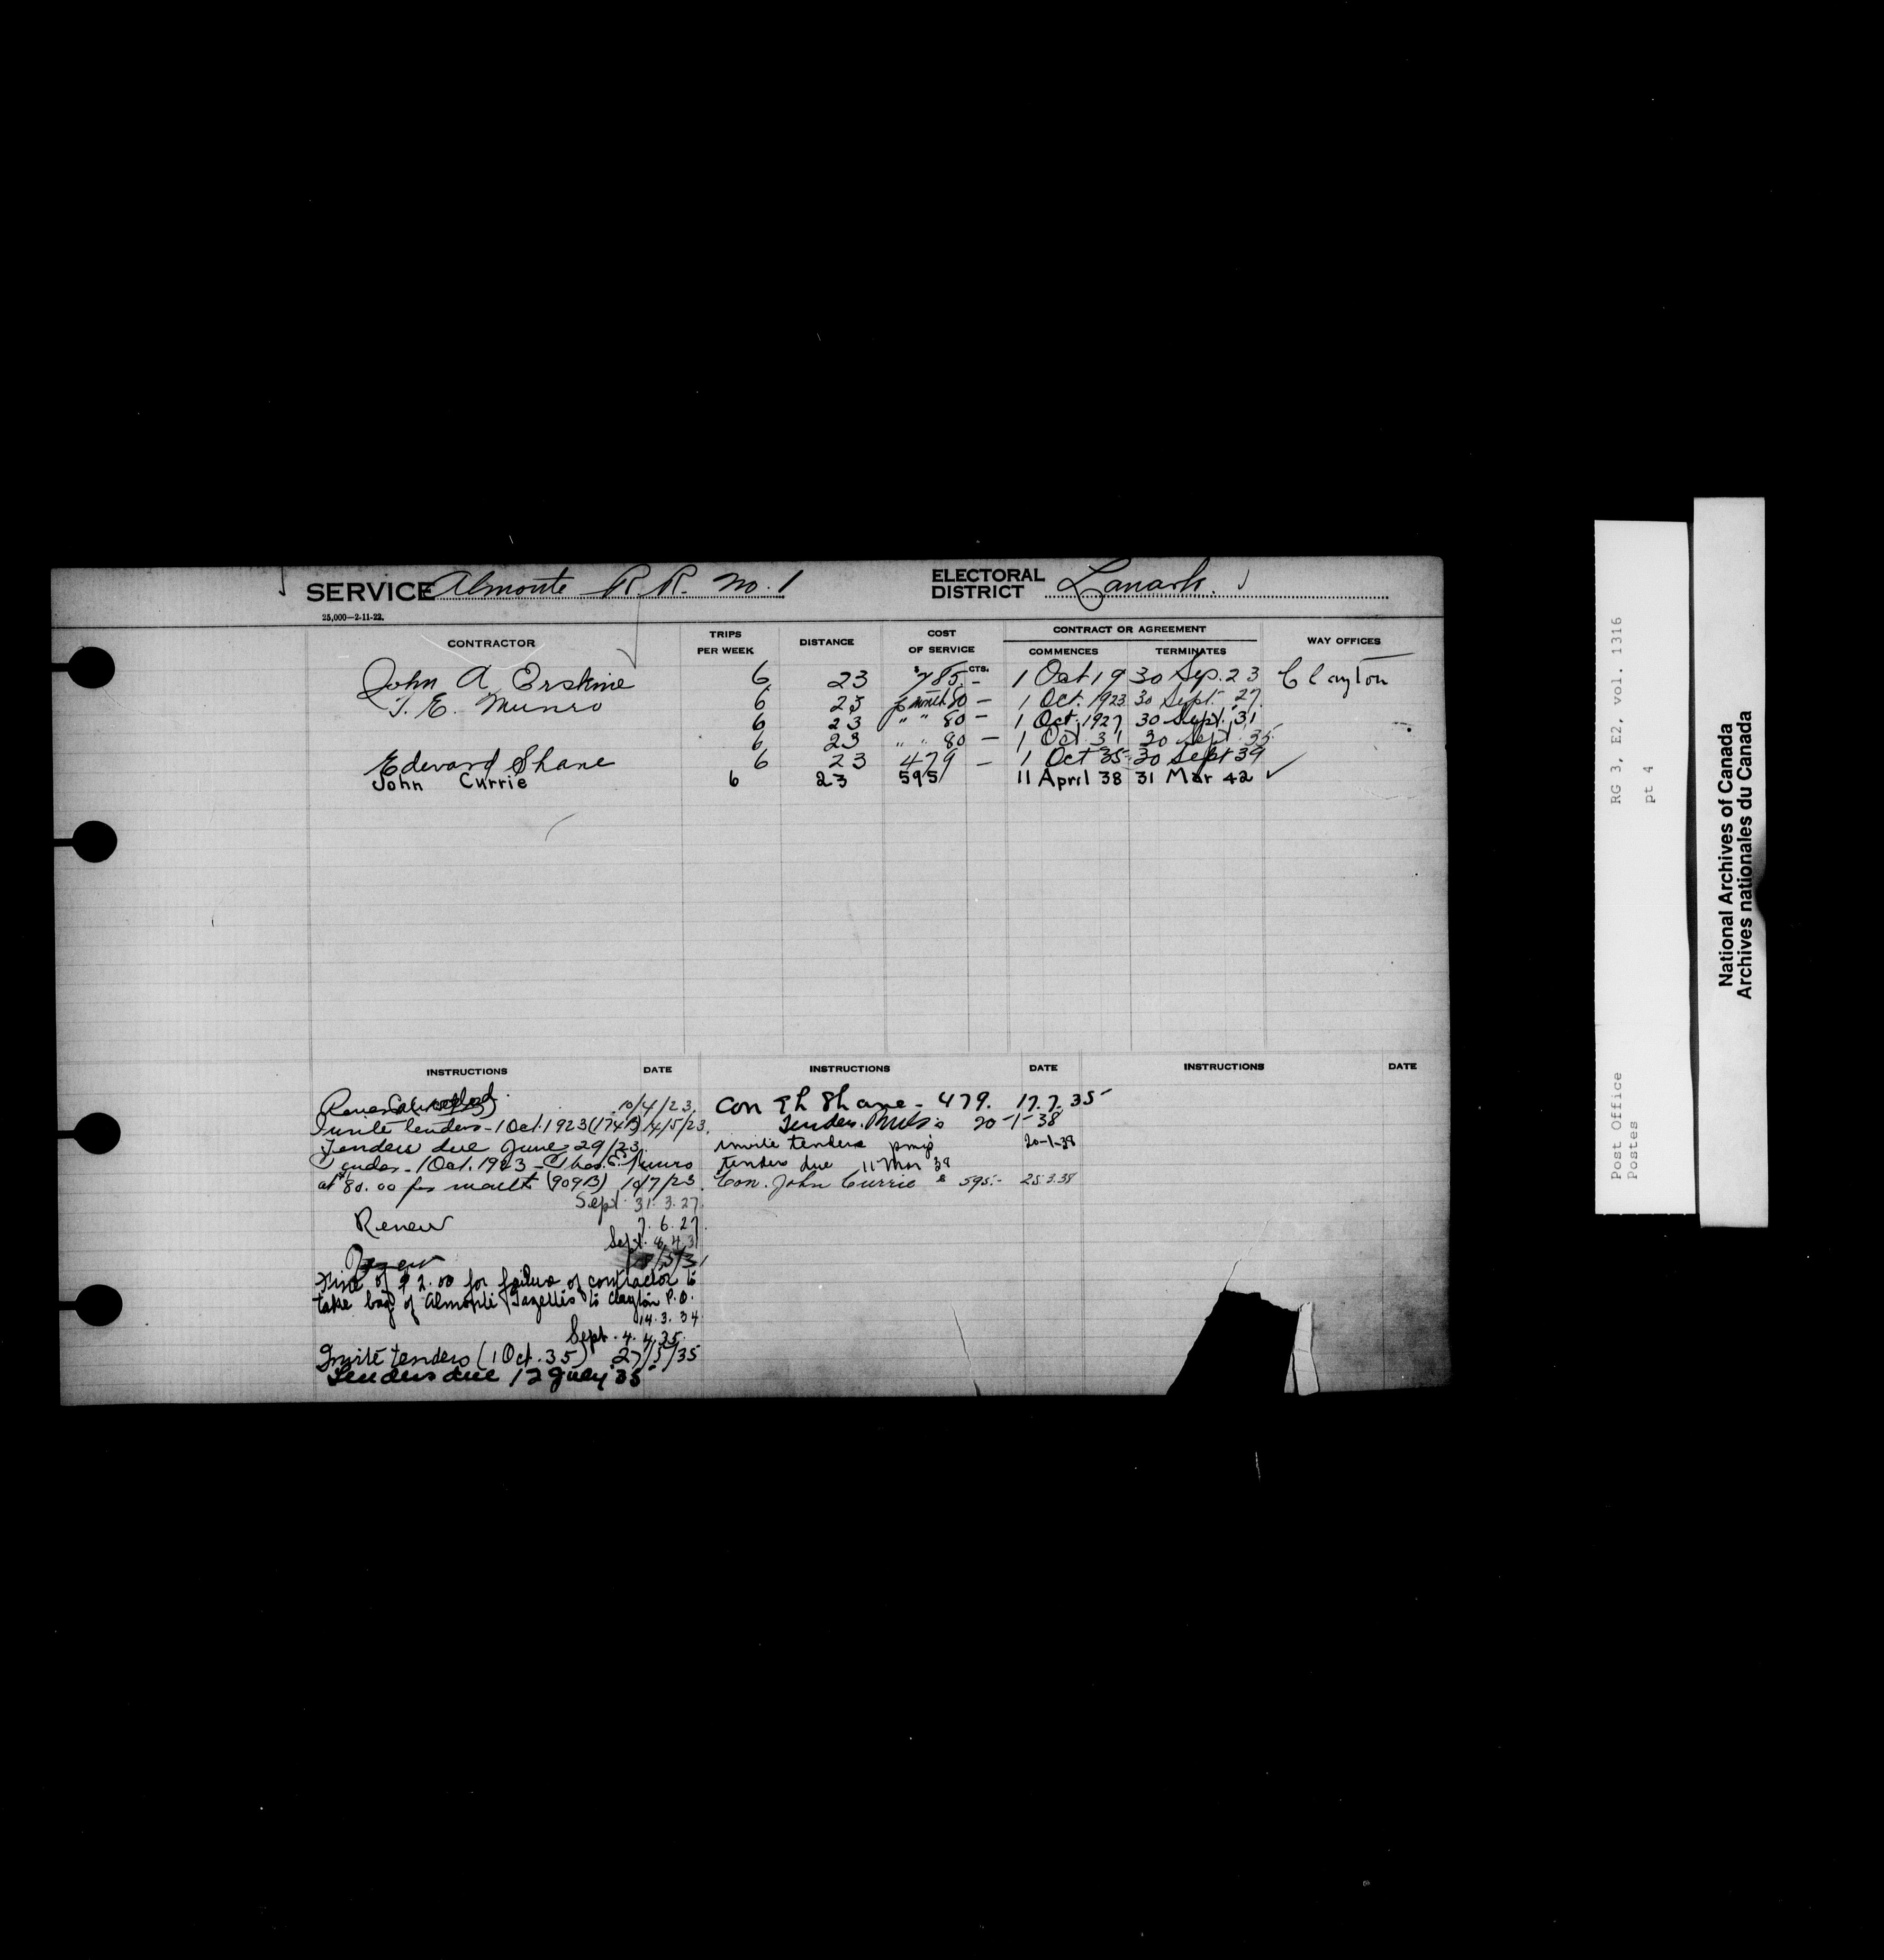 SERVICE Almonte R.R. No. 1 ELECTORAL DISTRICT Lanark.
25,000—2-11-22.
CONTRACTOR TRIPS PER WEEK DISTANCE COST OF SERVICE CONTRACT OR AGREEMENT COMMENCES TERMINATES WAY OFFICES
$ CTS.
John A Erskine 6 23 785.- 1 Oct 19 30 Sep. 23 Clayton
T. E. Munro 6 23 month 80 — 1 Oct. 1923 30 Sept. 27.
6 23 " " 80 — 1 Oct. 1927 30 Sept. 31
6 23 " " 80 — 1 Oct 31 30 Sept. 35
Edward Shane 6 23 479 — 1 Oct 35 30 Sept 39
John Currie 6 23 595 11 April 38 31 Mar 42 ✓
INSTRUCTIONS DATE
Cancelled. 10/4/23.
Invite tenders - 1 Oct. 1923 (174B) 4/5/23.
Tenders due June 29/23.
Tender - 1 Oct. 1923 - Thos. E. Munro
at $80.00 per month (909B) 10/7/23.
Sept. 31.3.27.
Renew 7.6.27.
Sept. 8.4.31
Renew 18/5/31
Fine of $2.00 for failure of contractor to
take bag of Almonte Gazettes to Clayton P.O.
14.3.34.
Sept. 4.4.35.
Invite tenders (1 Oct. 35) 27/5/35
Tenders due 12 July 35
INSTRUCTIONS DATE
Con Shane - 479. 17.7.35-
Tenders 20-1-38
invite tenders pmg 20-1-38
tenders due 11 Mar 38
Con. John Currie $595.- 25.3.38
INSTRUCTIONS DATE
RG 3, E2, vol. 1316
pt 4
Post Office
Postes
National Archives of Canada
Archives nationales du Canada